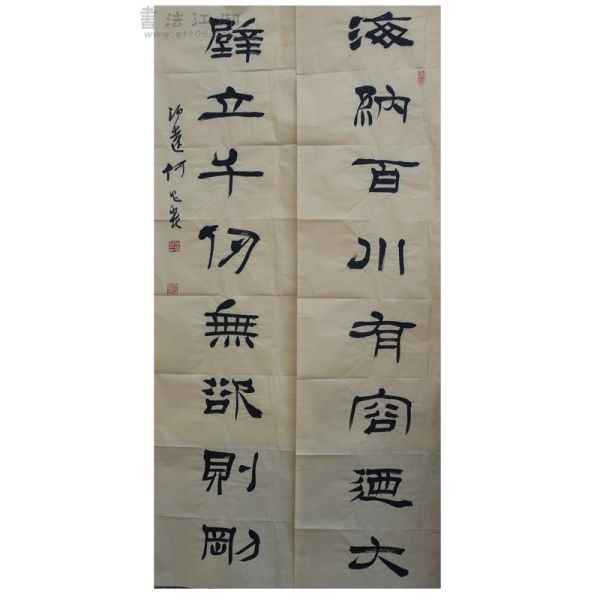 海納百川有容迺大
壁立千仞無欲則剛
書法江湖
www.sf108.com